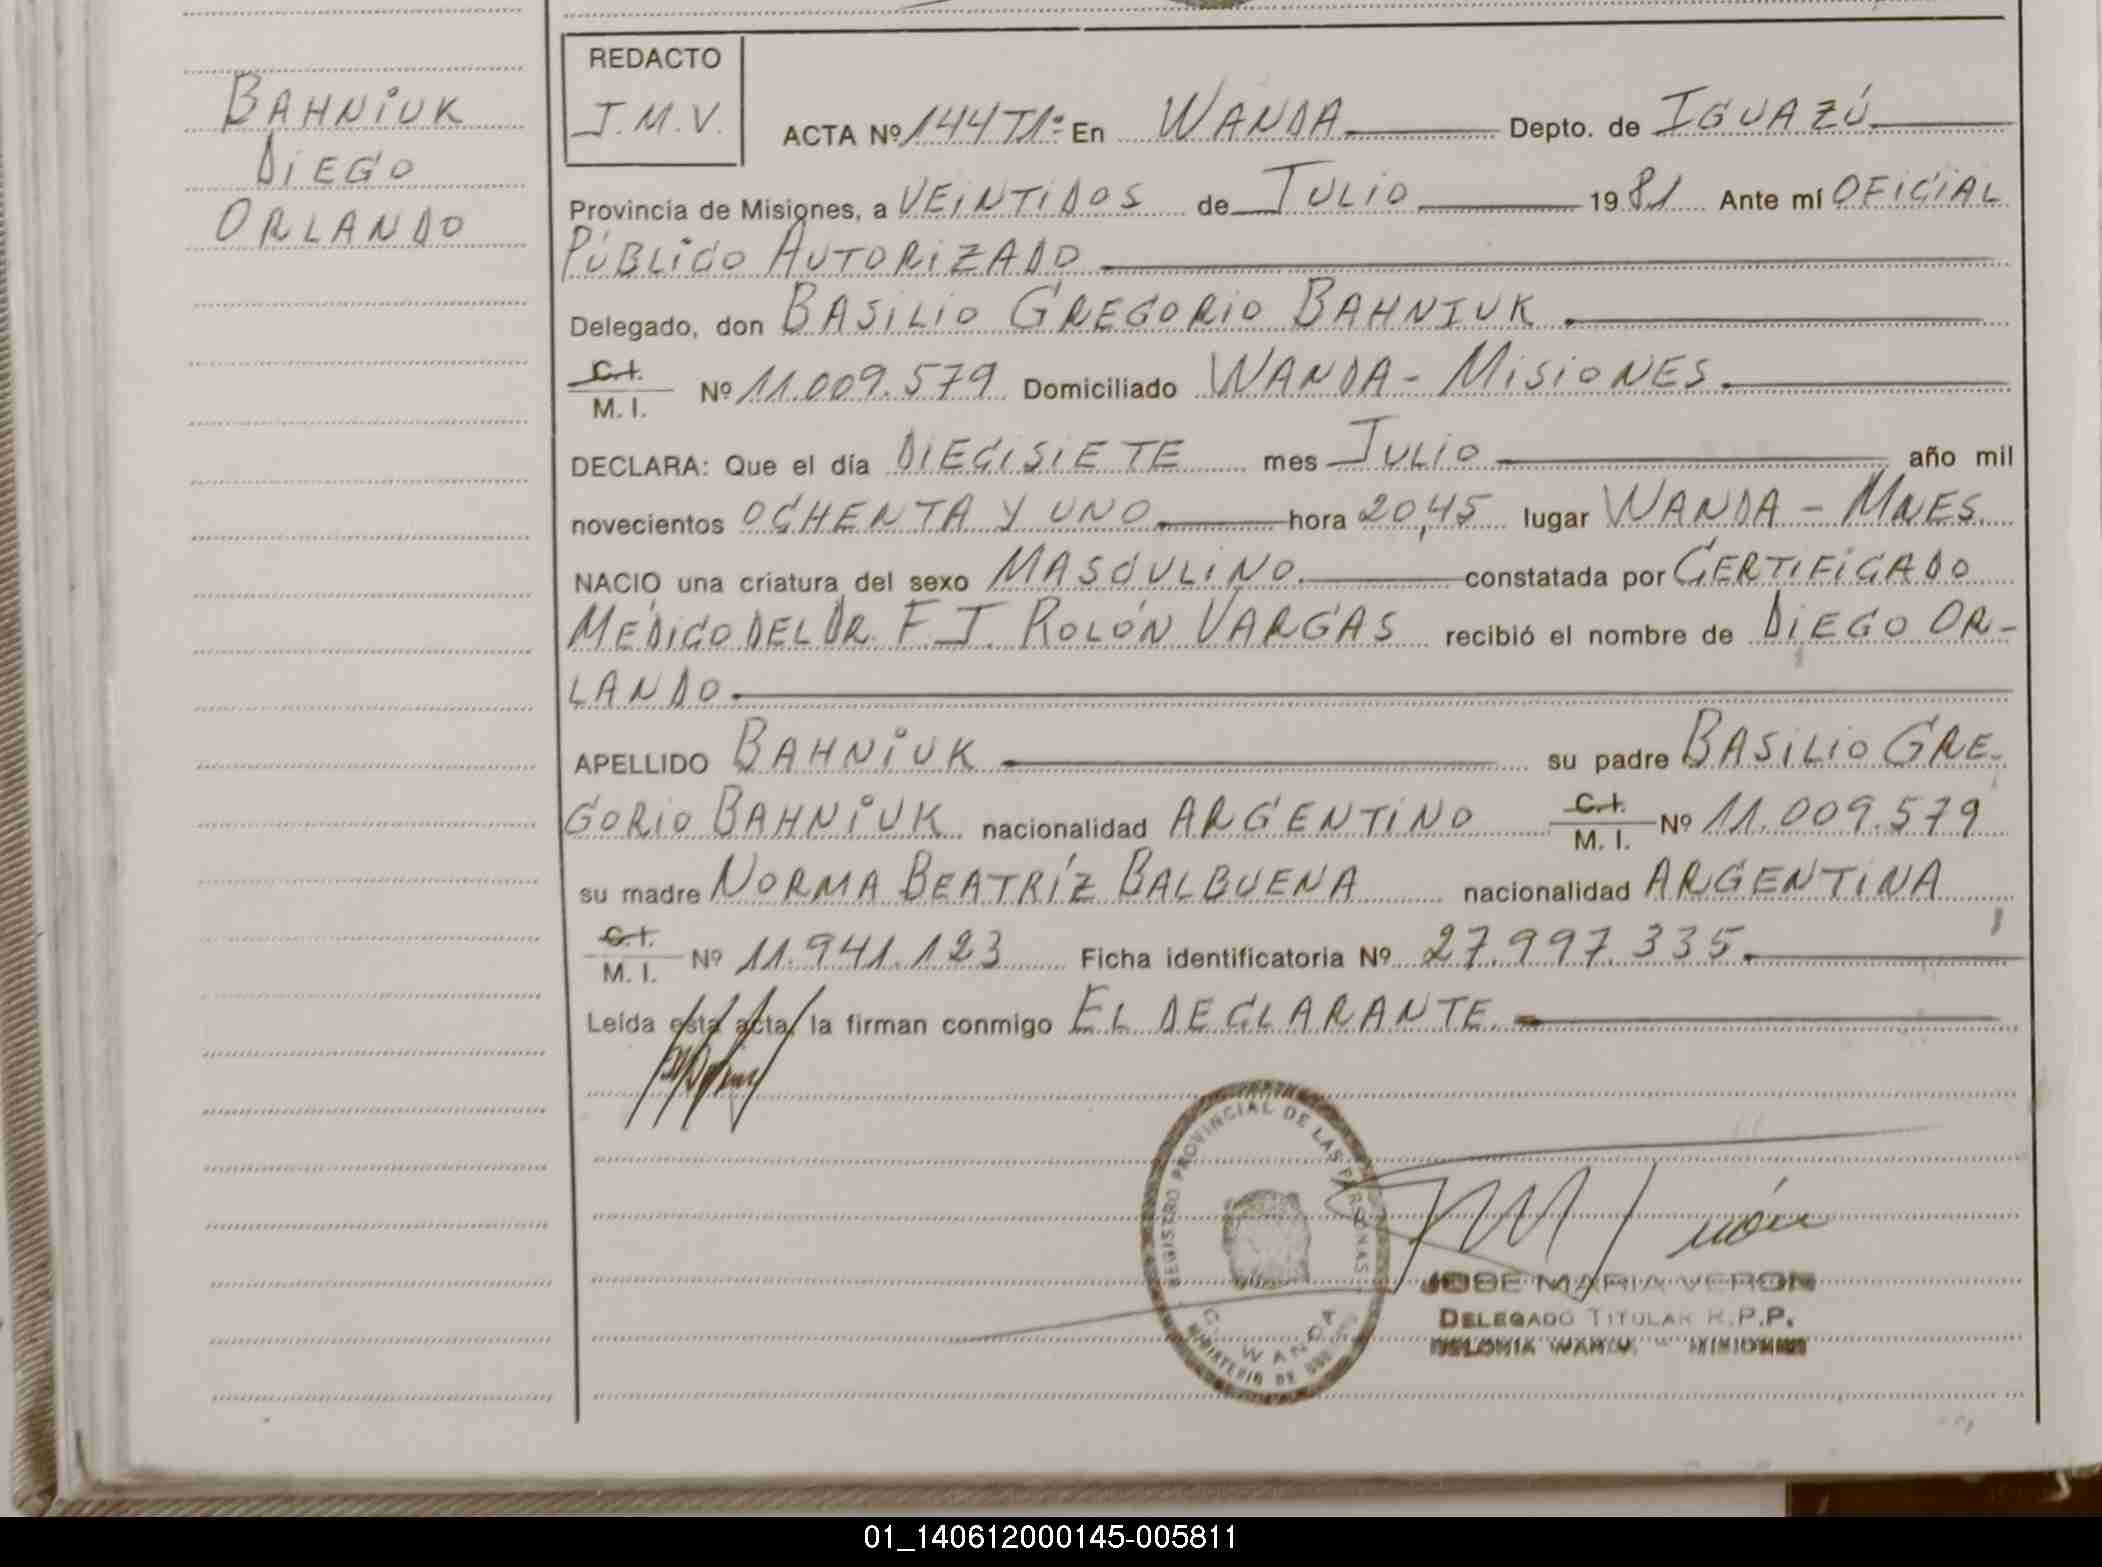 BAHNIUK
DIEGO
ORLANDO
REDACTO
J.M.V.
ACTA Nº 144T1º En WANDA Depto. de IGUAZÚ
Provincia de Misiones, a VEINTIDOS de JULIO 1981 Ante mí OFICIAL
PÚBLICO AUTORIZADO
Delegado, don BASILIO GREGORIO BAHNIUK
C.I.
M. I. Nº 11.009.579 Domiciliado WANDA - MISIONES
DECLARA: Que el día DIECISIETE mes JULIO año mil
novecientos OCHENTA Y UNO hora 20,45 lugar WANDA - MNES
NACIO una criatura del sexo MASCULINO constatada por CERTIFICADO
MÉDICO DEL DR. F. J. ROLÓN VARGAS recibió el nombre de DIEGO OR-
LANDO
APELLIDO BAHNIUK su padre BASILIO GRE-
GORIO BAHNIUK nacionalidad ARGENTINO C.I. M. I. Nº 11.009.579
su madre NORMA BEATRÍZ BALBUENA nacionalidad ARGENTINA
C.I.
M. I. Nº 11.941.123 Ficha identificatoria Nº 27.997.335
Leída esta acta, la firman conmigo EL DECLARANTE
REGISTRO PROVINCIAL DE LAS PERSONAS
C. WANDA
MINISTERIO DE
JOSE MARIA VERON
DELEGADO TITULAR R.P.P.
COLONIA WANDA - MISIONES
01_140612000145-005811